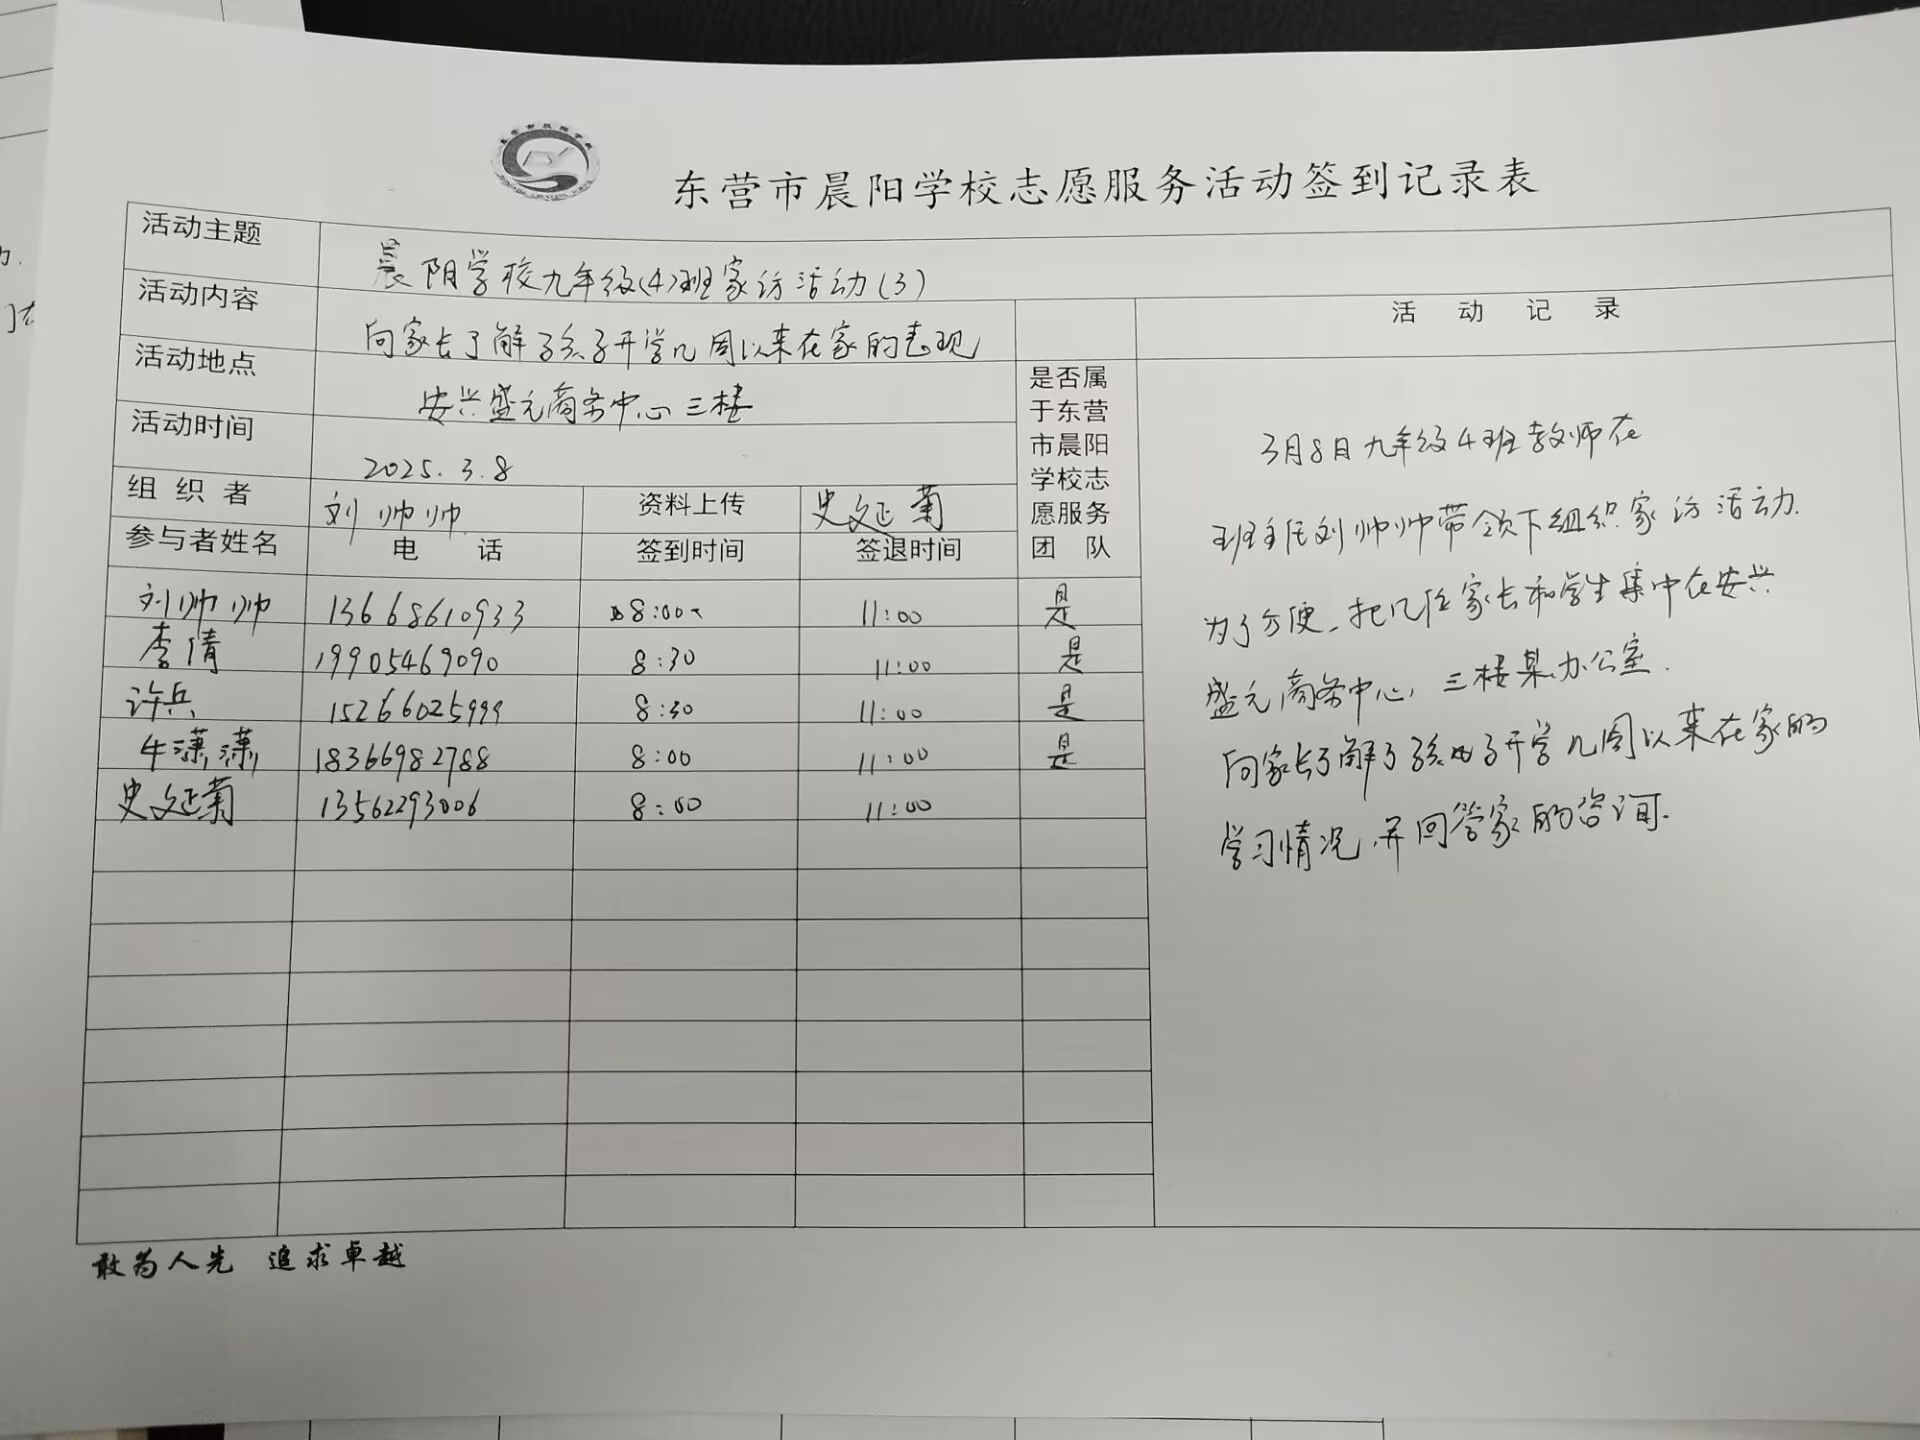 东营市晨阳学校志愿服务活动签到记录表
活动主题 晨阳学校九年级(4)班家访活动(3)
活动内容 向家长了解孩子开学几周以来在家的表现
活动记录
活动地点 安兴盛元商务中心三楼
活动时间 2025.3.8
组织者 刘帅帅 资料上传 史文延菊
是否属
于东营
市晨阳
学校志
愿服务
团队
参与者姓名 电话 签到时间 签退时间
刘帅帅 13668610933 8:00 11:00 是
李倩 19905469090 8:30 11:00 是
许兵 15266025999 8:30 11:00 是
牛潇潇 18366982788 8:00 11:00 是
史文延菊 13562293006 8:00 11:00
3月8日九年级4班教师在
班主任刘帅帅带领下组织家访活动.
为了方便,把几位家长和学生集中在安兴
盛元商务中心,三楼某办公室.
向家长了解了孩子开学几周以来在家的
学习情况,并回答家的咨询.
敢为人先 追求卓越